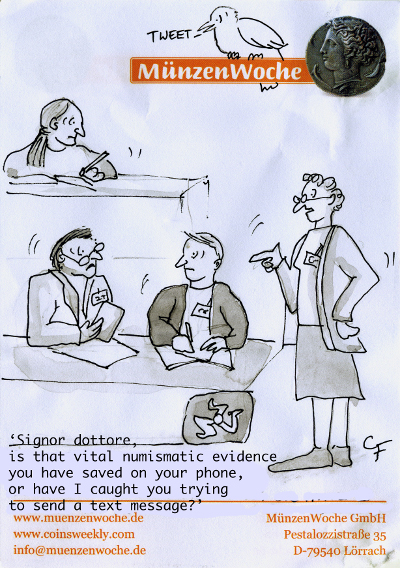 TWEET
MÜNZENWOCHE
CF
‘Signor dottore,
is that vital numismatic evidence
you have saved on your phone,
or have I caught you trying
to send a text message?’
www.muenzenwoche.de
www.coinsweekly.com
info@muenzenwoche.de
MünzenWoche GmbH
Pestalozzistraße 35
D-79540 Lörrach